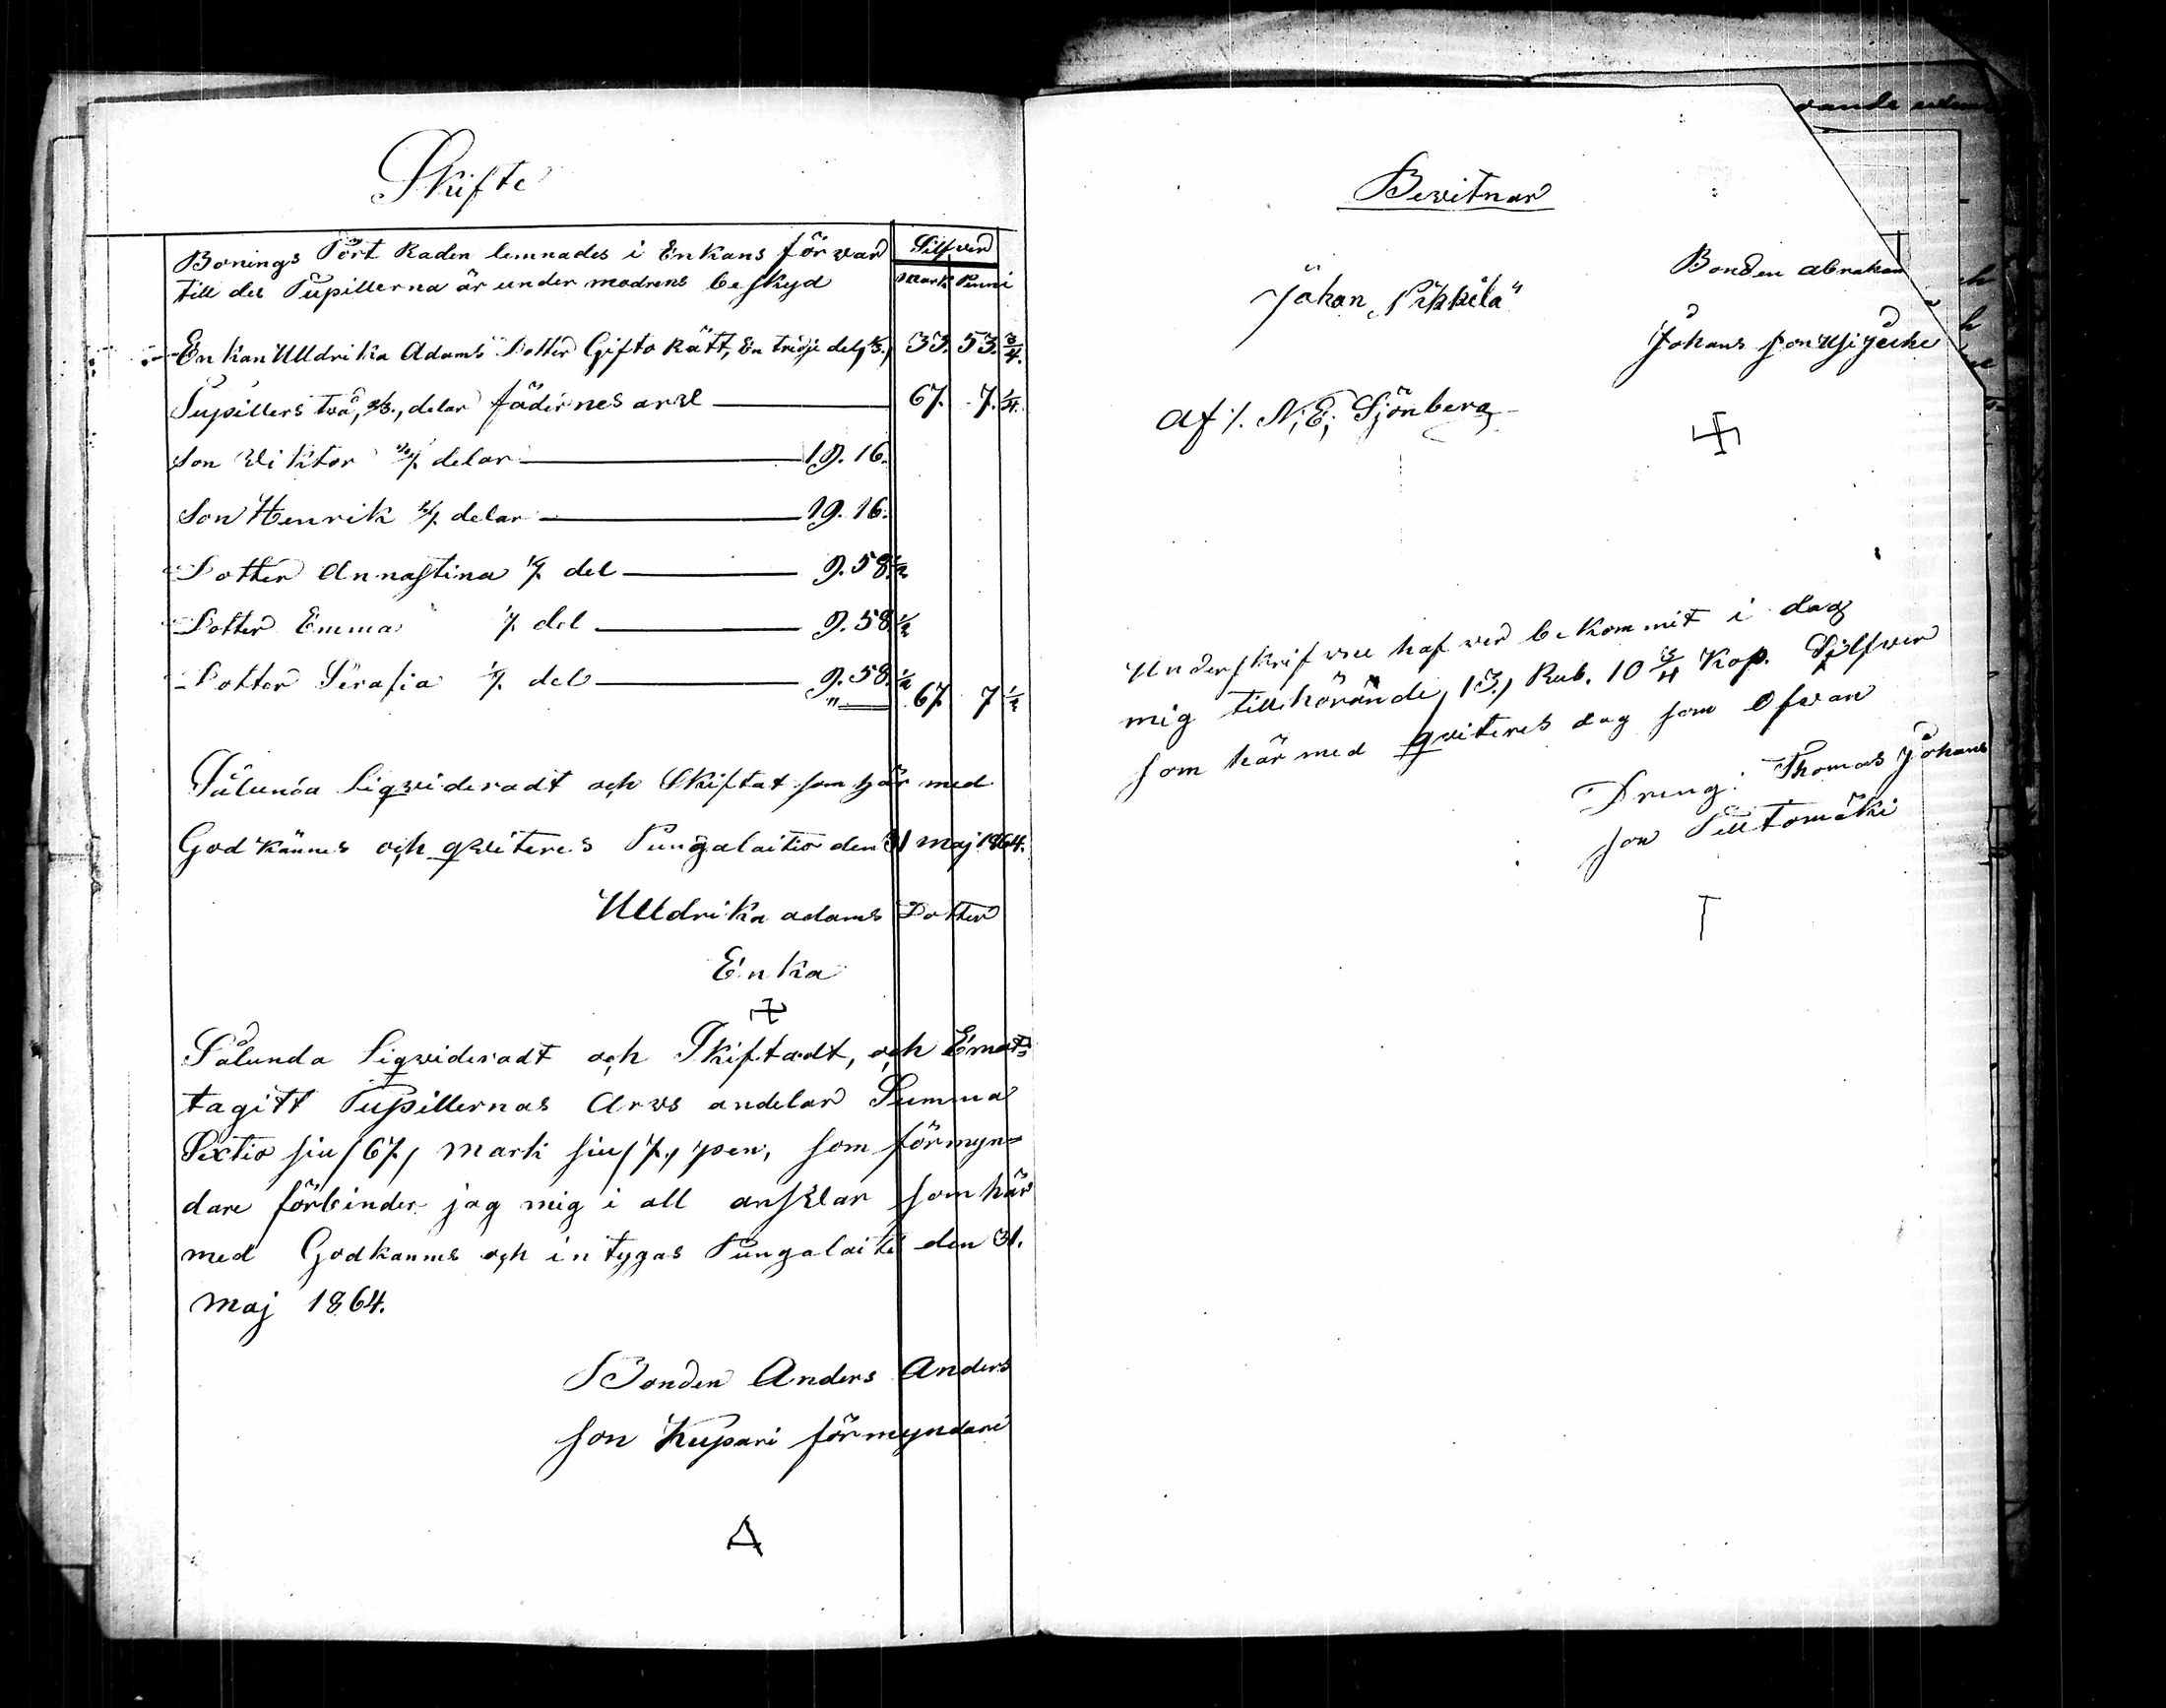 Skifte
Bonings Pört Raden lemnades i Enkans förvar
till des Pupillerna är under modrens beskyd
Silfver
Mark Penni
Enkan Ulldrika Adams Dotter Gifto Rätt, En tridje del, 1/3., 33. 53. 3/4.
Pupillers två, 2/3., delar fädernes arvl 67. 7. 1/4.
Son Viktor 2/7. delar 19. 16.
Son Henrik 2/7. delar 19. 16.
Dotter Annastina 1/7. del 9. 58. 1/2
Dotter Emma 1/7. del 9. 58. 1/2
Dotter Serafia 1/7. del 9. 58. 1/2
" 67. 7 1/2
Sålunda Liqvideradt och Skiftat som här med
Godkännes och qviteres Pungalaitio den 31 maj 1864.
Ulldrika adams Dotter
Enka
Sålunda Liqvideradt och Skiftadt, och Emot=
tagitt Pupillernas Arvs andelar Summa
Sextio siu /67./ mark siu /7./ pen, som förmyn=
dare förbinder jag mig i all ansvlar som här
med Godkannes och intygas Pungalaitio den 31.
maj 1864.
Bonden Anders Anders
son Kupari förmyndare
Δ
Bevitnar
Bonden abraham
Johan „Pikkilä"
Johans son
af /. N, E, Sjönberg
卐
Underskrifvne hafver bekommit i dag
mig tillhörände, 13., Rub. 10 3/4 Kop. Silfver
som här med qviteres dag som Ofvan
Dreng: Thomas Johans
son Peltomäki
T